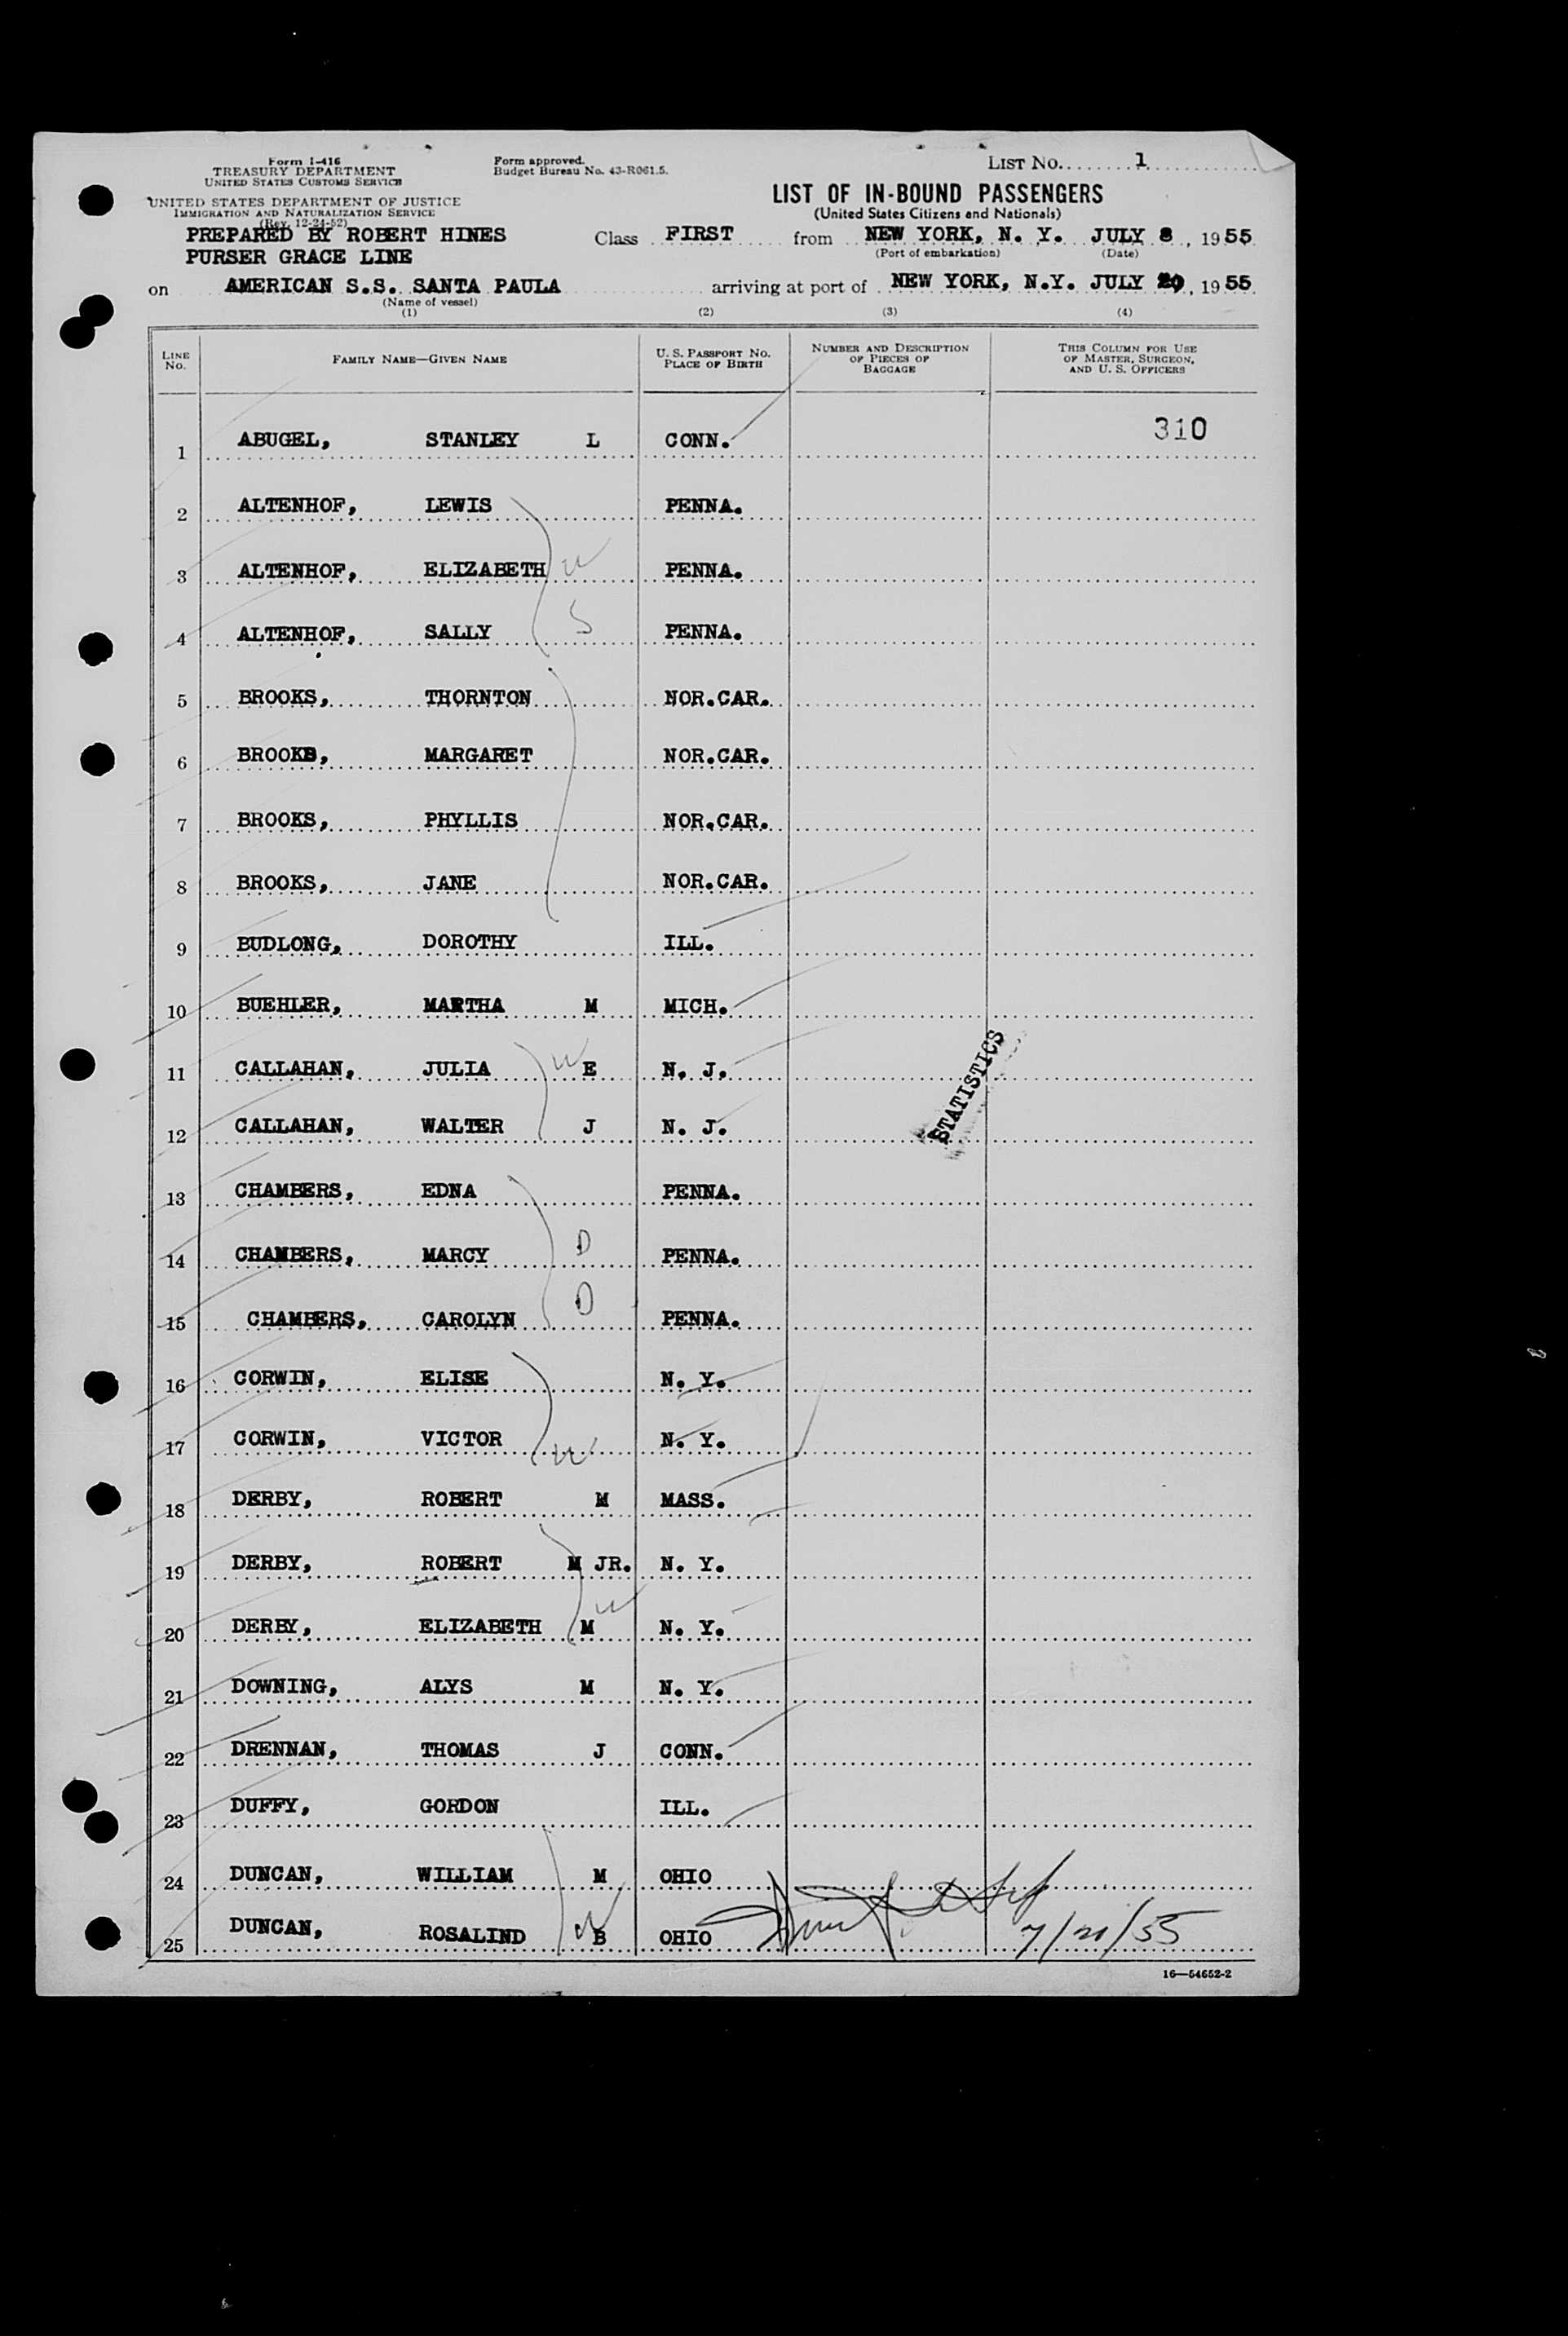 Form I-416
TREASURY DEPARTMENT
UNITED STATES CUSTOMS SERVICE
Form approved.
Budget Bureau No. 43-R061.5.
LIST No. 1
UNITED STATES DEPARTMENT OF JUSTICE
IMMIGRATION AND NATURALIZATION SERVICE
(Rev. 12-24-52)
LIST OF IN-BOUND PASSENGERS
(United States Citizens and Nationals)
PREPARED BY ROBERT HINES
PURSER GRACE LINE
Class FIRST from NEW YORK, N. Y. JULY 8, 1955
(Port of embarkation) (Date)
on AMERICAN S.S. SANTA PAULA arriving at port of NEW YORK, N.Y. JULY 20, 1955
(Name of vessel)
(1) (2) (3) (4)
LINE No. FAMILY NAME—GIVEN NAME U. S. PASSPORT No. PLACE OF BIRTH NUMBER AND DESCRIPTION OF PIECES OF BAGGAGE THIS COLUMN FOR USE OF MASTER, SURGEON, AND U. S. OFFICERS
310
1 ABUGEL, STANLEY L CONN.
2 ALTENHOF, LEWIS PENNA.
3 ALTENHOF, ELIZABETH W PENNA.
4 ALTENHOF, SALLY S PENNA.
5 BROOKS, THORNTON NOR.CAR.
6 BROOKS, MARGARET NOR.CAR.
7 BROOKS, PHYLLIS NOR.CAR.
8 BROOKS, JANE NOR.CAR.
9 BUDLONG, DOROTHY ILL.
10 BUEHLER, MARTHA M MICH.
11 CALLAHAN, JULIA W E N. J.
12 CALLAHAN, WALTER J N. J.
STATISTICS
13 CHAMBERS, EDNA PENNA.
14 CHAMBERS, MARCY D PENNA.
15 CHAMBERS, CAROLYN D PENNA.
16 CORWIN, ELISE N. Y.
17 CORWIN, VICTOR W N. Y.
18 DERBY, ROBERT M MASS.
19 DERBY, ROBERT M JR. N. Y.
20 DERBY, ELIZABETH M W N. Y.
21 DOWNING, ALYS M N. Y.
22 DRENNAN, THOMAS J CONN.
23 DUFFY, GORDON ILL.
24 DUNCAN, WILLIAM M OHIO
25 DUNCAN, ROSALIND W B OHIO
16—54652-2